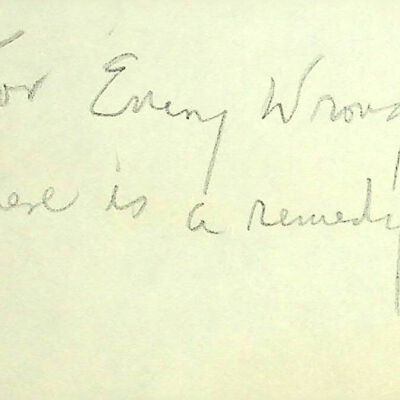 For Every Wrong
here is a remedy